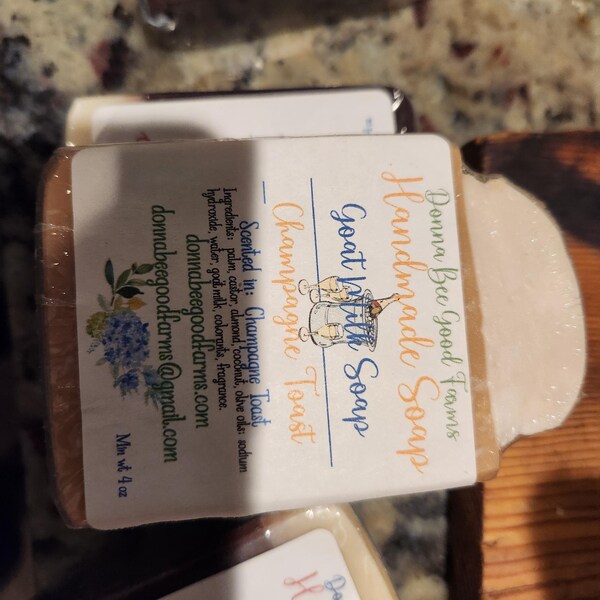 Donna Bee Good Farms
Handmade Soap
Goat Milk Soap
Champagne Toast
Scented in: Champagne Toast
Ingredients: palm, castor, almond, coconut, olive oils; sodium
hydroxide, water, goat milk, colorants, fragrance.
donnabeegoodfarms.com
donnabeegoodfarms@gmail.com
Min wt 4 oz